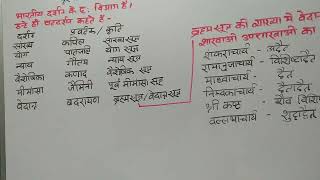 भारतीय दर्शन के ६ विभाग है।
इन्हे ही षटदर्शन कहते है -
दर्शन प्रवर्तक / कृति
सांख्य कपिल सांख्य सूत्र
योग पातंजलि योग सूत्र
न्याय गौतम न्याय सूत्र
वैशेषिक कणाद वैशेषिक सूत्र
मीमांसा जैमिनी पूर्व मीमांसा सूत्र
वेदान्त बदरायण ब्रह्मसूत्र/वेदान्तसूत्र
ब्रह्मसूत्र की व्याख्या में वेदान्त
शाखाओ उपशाखाओ का
शंकराचार्य - अद्वैत
रामानुजाचार्य - विशिष्टाद्वैत
माध्वाचार्य - द्वैत
निम्बकाचार्य - द्वैताद्वैत
श्री कण्ठ - शैव विशि
वल्लभाचार्य - शुद्धाद्वैत